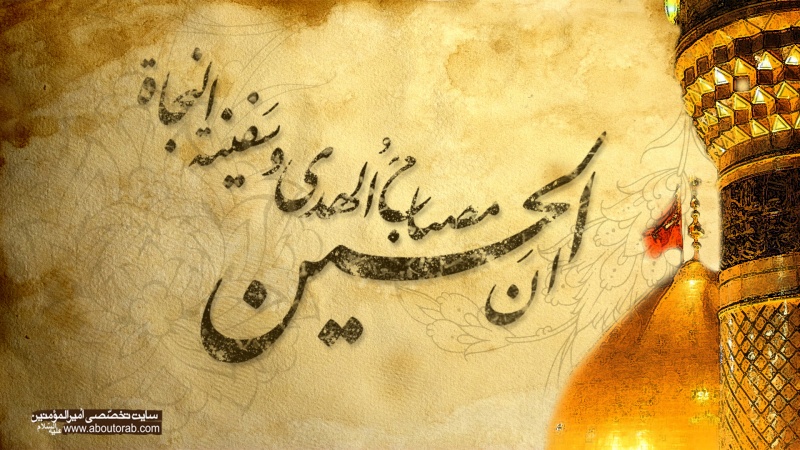 ان الحسین مصباح الهدی و سفینة النجاة
سایت تخصصی امیرالمؤمنین
علیه السلام
www.aboutorab.com